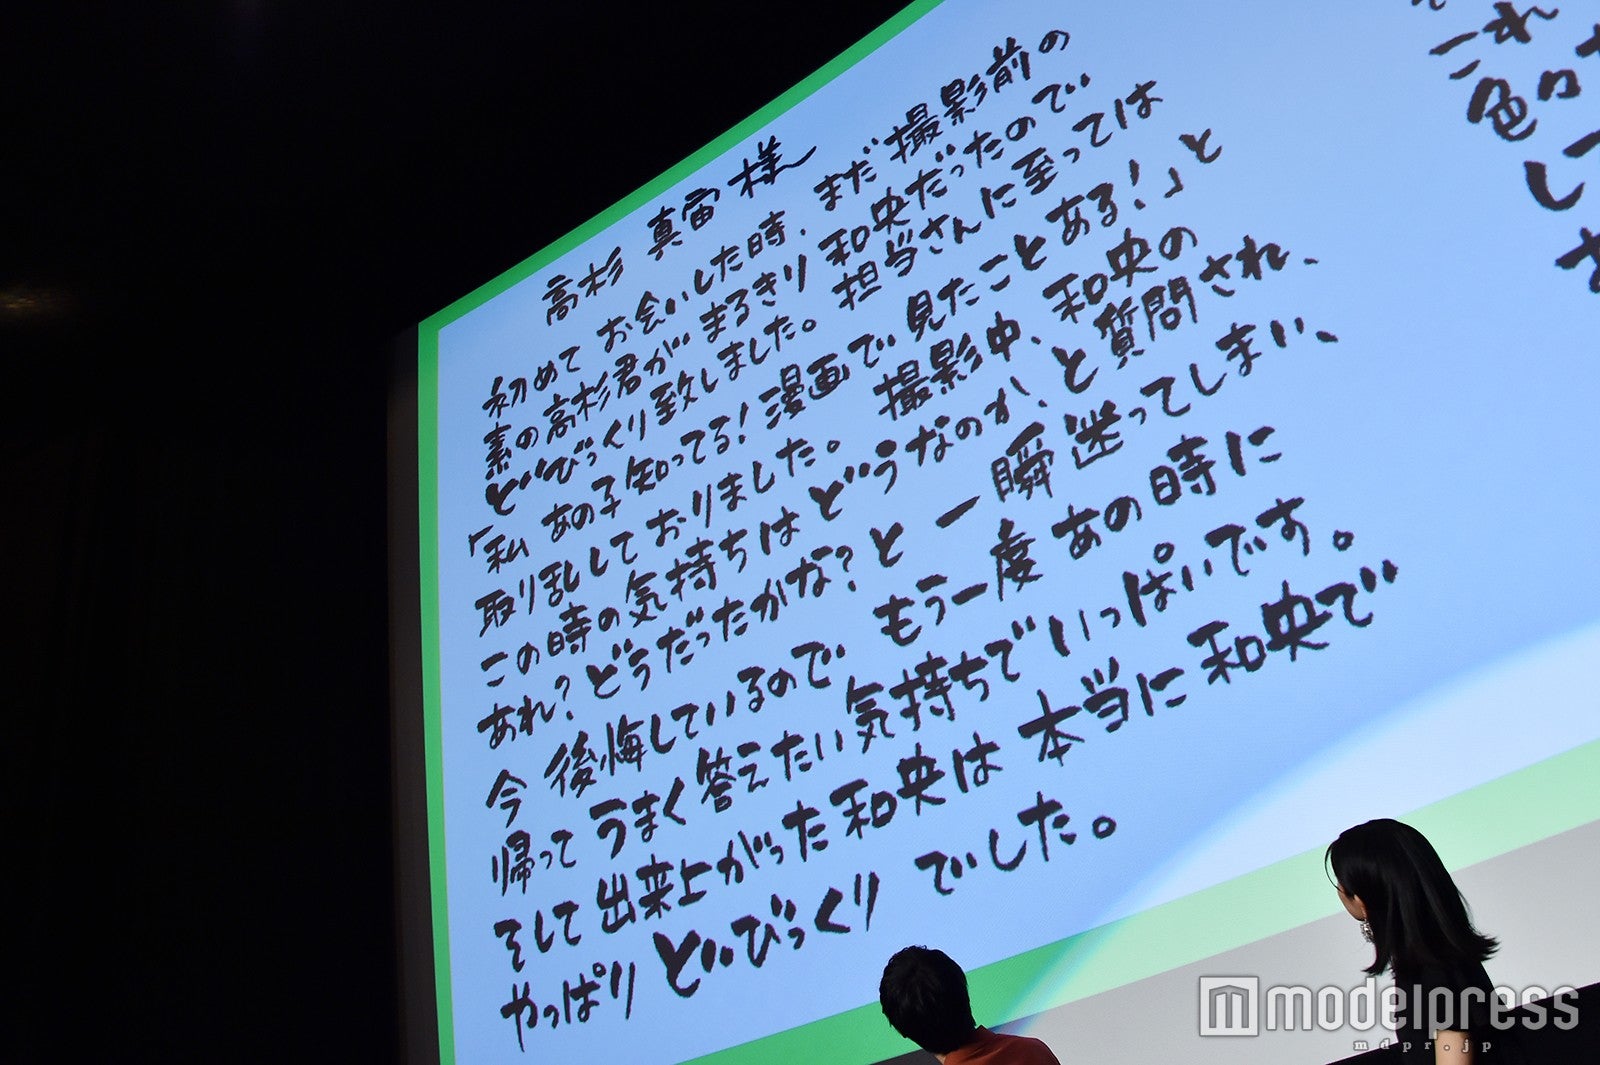 高杉 真宙 様
初めて お会いした時、まだ 撮影前の
素の高杉君が まるきり 和央だったので
どびっくり致しました。担当さんに至っては
「私 あの子知ってる!漫画で見たことある!」と
取り乱しておりました。撮影中、和央の
この時の気持ちはどうなのか、と質問され、
あれ?どうだったかな?と一瞬迷ってしまい、
今 後悔しているので もう一度 あの時に
帰って うまく答えたい気持ちでいっぱいです。
そして出来上がった和央は 本当に 和央で
やっぱり どびっくり でした。
これ
色々
し
modelpress
mdpr.jp